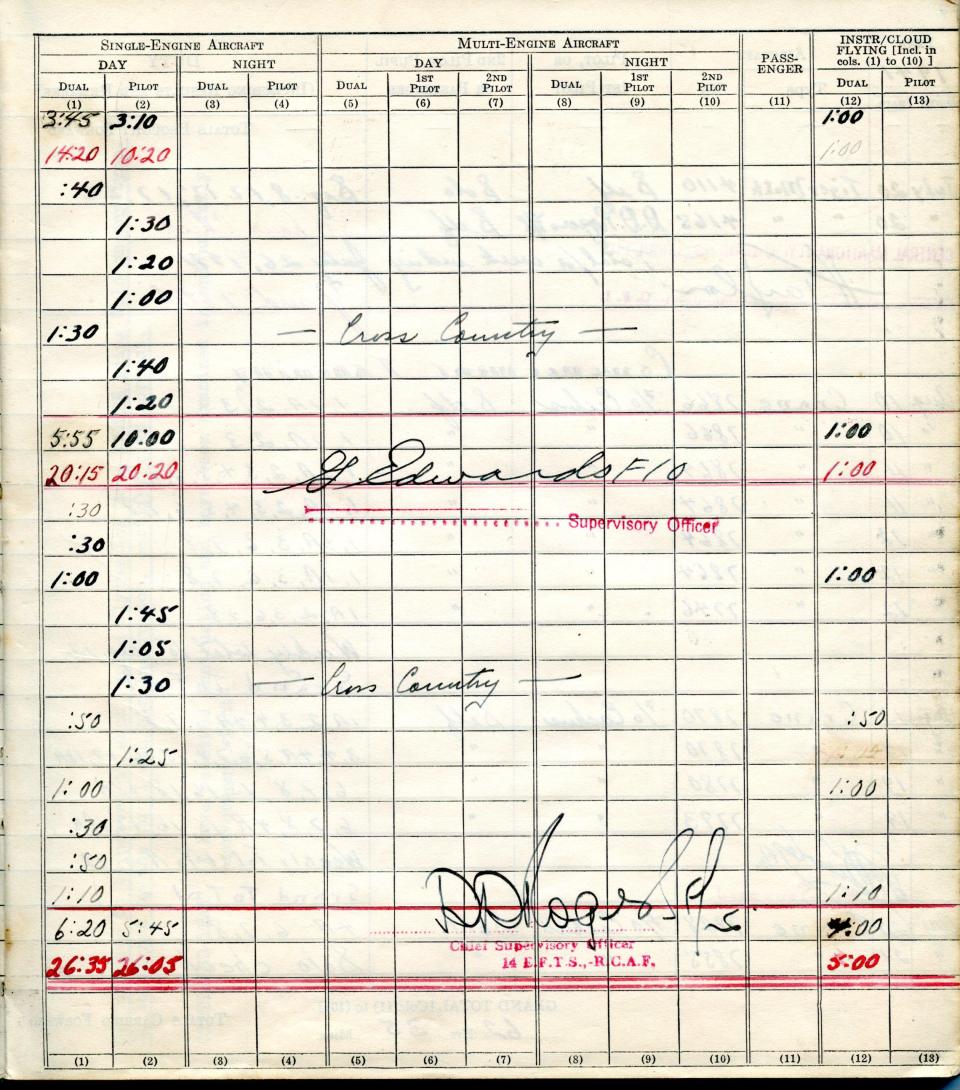 SINGLE-ENGINE AIRCRAFT MULTI-ENGINE AIRCRAFT PASS-ENGER INSTR/CLOUD FLYING [Incl. in cols. (1) to (10) ]
DAY NIGHT DAY NIGHT
DUAL PILOT DUAL PILOT DUAL 1ST PILOT 2ND PILOT DUAL 1ST PILOT 2ND PILOT DUAL PILOT
(1) (2) (3) (4) (5) (6) (7) (8) (9) (10) (11) (12) (13)
3:45 3:10 1:00
14:20 10:20 1:00
:40
1:30
1:20
1:00
1:30 — Cross Country —
1:40
1:20
5:55 10:00 1:00
20:15 20:20 G. Edwards F/O 1:00
:30
Supervisory Officer
:30
1:00 1:00
1:45
1:05
1:30 — Cross Country —
:50 :50
1:25
1:00 1:00
:30
:50
1:10 1:10
6:20 5:45 D D Rogers 4:00
Chief Supervisory Officer
26:35 26:05 14 E.F.T.S.,-R.C.A.F. 5:00
(1) (2) (3) (4) (5) (6) (7) (8) (9) (10) (11) (12) (13)